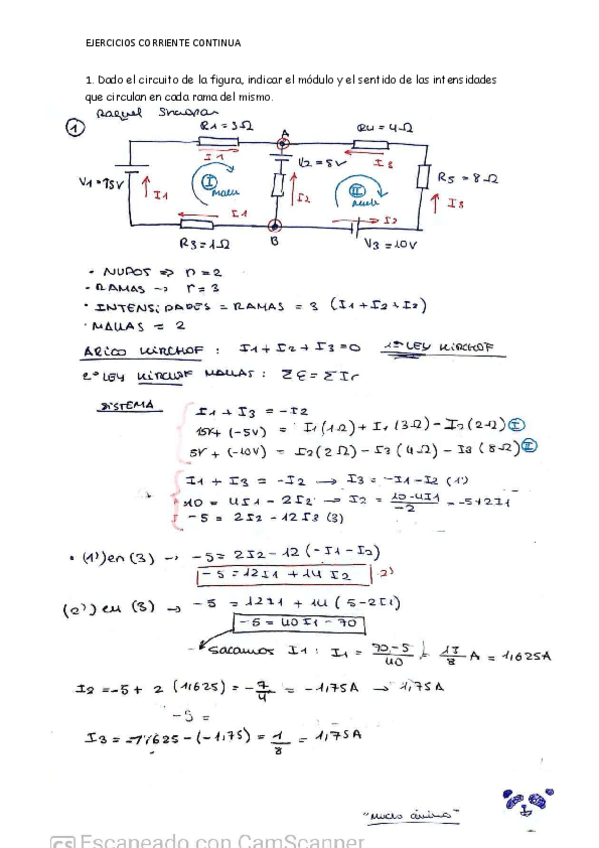 EJERCICIOS CORRIENTE CONTINUA
1. Dado el circuito de la figura, indicar el módulo y el sentido de las intensidades
que circulan en cada rama del mismo.
Raquel
1
R1=3Ω A R4=4Ω
I1 I3
V1=15V I1 I malla V2=5V I2 II malla R5=8Ω I3
I1 I3
R3=1Ω B V3=10V
• NUDOS => n=2
- RAMAS -> r=3
• INTENSIDADES = RAMAS = 3 (I1+I2+I3)
· MALLAS = 2
KIRCHOF : I1+I2+I3=0 1ª LEY KIRCHOF
2ª LEY KIRCHOF MALLAS : ΣE=ΣIr
SISTEMA
I1+I3 = -I2
15V+(-5V) = I1(1Ω)+I1(3Ω)-I2(2Ω) I
5V+(-10V) = I2(2Ω)-I3(4Ω)-I3(8Ω) II
I1+I3 = -I2 -> I3=-I1-I2 (1')
10 = 4I1-2I2 -> I2 = 10-4I1/-2 = -5+2I1
-5 = 2I2-12I3 (3)
• (1')en (3) -> -5=2I2-12(-I1-I2)
-5=12I1+14I2 2')
(2') en (3) -> -5 = 12I1+14(5-2I1)
-5=40I1-70
Sacamos I1 : I1 = 70-5/40 = 13/8 A = 1,625A
I2=-5+2(1,625) = -7/4 = -1,75A -> 1,75A
-5 =
I3 = -1,625-(-1,75) = 1/8 = 1,75A
"Mucho ánimo"
CS Escaneado con CamScanner